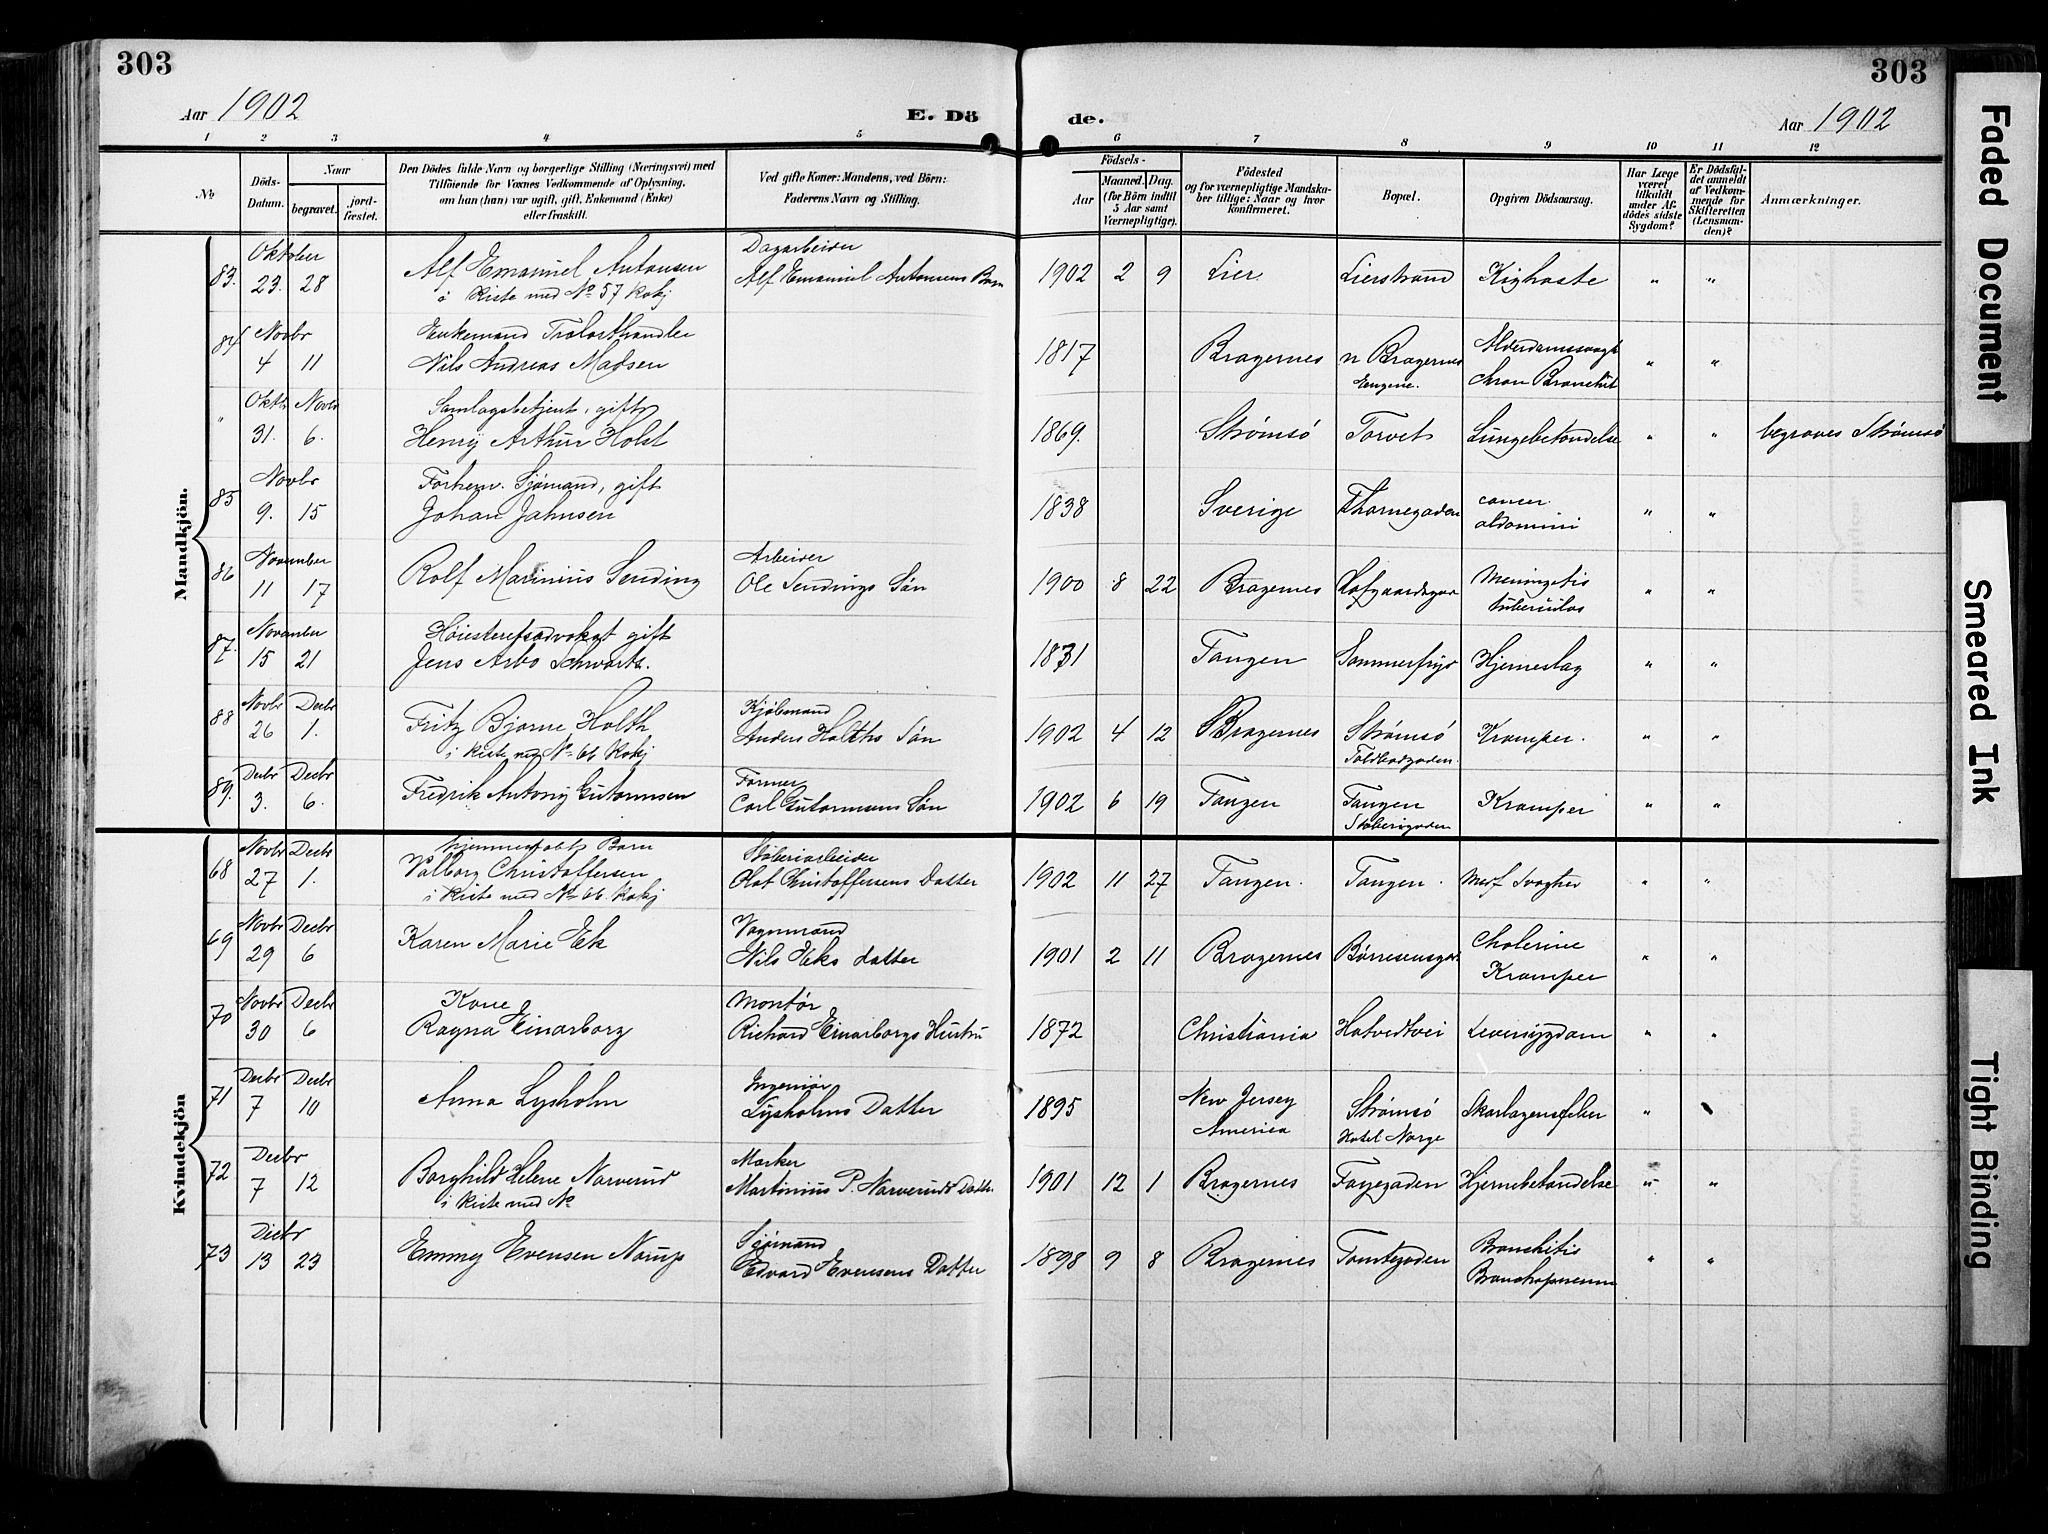 303
303
Aar 1902
E. Dö
de.
Aar 1902
1 2 3 4 5 6 7 8 9 10 11 12
No
Döds-
Datum.
Naar
begravet.
jord-
fæstet.
Den Dödes fulde Navn og borgerlige Stilling (Næringsvei) med
Tilföiende for Voxnes Vedkommende af Oplysning,
om han (hun) var ugift, gift, Enkemand (Enke)
eller fraskilt.
Ved gifte Koner: Mandens, ved Börn:
Faderens Navn og Stilling.
Födsels-
Aar
Maaned. Dag.
(for Börn indtil
5 Aar samt
Værnepligtige).
Födested
og for værnepligtige Mandska-
ber tillige: Naar og hvor
konfirmeret.
Bopæl.
Opgiven Dödsaarsag.
Har Læge
været
tilkaldt
under Af-
dödes sidste
Sygdom?
Er Dödsfal-
det anmeldt
af Vedkom-
mende for
Skifteretten
(Lensman-
den)?
Anmærkninger.
Mandkjön.
83. Oktober 23. 28
Alf Emanuel Antonsen
i Kiste med No 57 Kvkj
Dagarbeider
Alf Emanuel Antonsens Barn
1902 2 9 Lier Lierstrand Kighoste " "
84 Novbr 4 11
Enkemand Trælasthandler
Nils Andreas Madsen
1817 Bragernes n Bragernes
Engene.
chron Bronchit " "
" Oktb 31. Novbr 6.
Samlagsbetjent, gift
Henry Arthur Holst
1869. Strømsö Torvet Lungebetændelse " " begraves Strømsö
85 Novbr 9. 15
Forhenv. Sjømand, gift
Johan Jahnsen
1838 Sverige Thornegaden cancer
abdomini " "
86 November 11 17
Rolf Marinius Sending
Arbeider
Ole Sendings Søn
1900 8 22 Bragernes Hofgaardsgar Meningetis
tuberculos " "
87. November 15 21
Høiesteretsadvokat gift
Jens Arbo Schwartz.
1831 Tangen Sommerfryd Hjerneslag " "
88 Novbr 26 Decbr 1.
Fritz Bjarne Holth
i Kiste med No 66 Kvkj
Kjøbmand
Anders Holths Søn
1902 4 12 Bragernes Strømsö
Toldbodgaden. Kramper. " "
89. Decbr 3. Decbr 6.
Fredrik Antony Gutormsen
Former
Carl Gutormsens Søn
1902 6 19 Tangen Tangen
Støberigaden Kramper " "
Kvindekjön
68 Novbr 27 Decbr 1.
hjemmedøbt Barn
Valborg Christoffersen
i Kiste med No 66. Kvkj
Støberiarbeider
Olaf Christoffersens Datter
1902 11 27 Tangen. Tangen. Medf Svaghed " "
69 Novbr 29 Decbr 6
Karen Marie Ek
Vognmand
Nils Eks datter
1901 2 11 Bragernes Børresensgad Cholerine
Kramper " "
70 Novbr 30 Decbr 6
Kone
Ragna Einarborg
Montør
Richard Einarborgs Hustru
1872 Christiania Hotvedtvei Leversygdom " "
71 Decbr 7 Decbr 10
Anna Lysholm
Ingeniør
Lysholms Datter
1895 New Jersey
America Strømsö
Hotel Norge Skarlagensfeber "
72 Decbr 7 12
Borghild Helene Narverud
i Kiste med No
Marker
Martinius P. Narveruds Datter
1901 12 1 Bragernes Fayegaden Hjernebetændelse " "
73 Decbr 13 23
Emmy Evensen Norup
Sjømand
Edvard Evensens Datter
1898 9 8 Bragernes Tomtegaden Bronchitis " "
Faded Document
Smeared Ink
Tight Binding